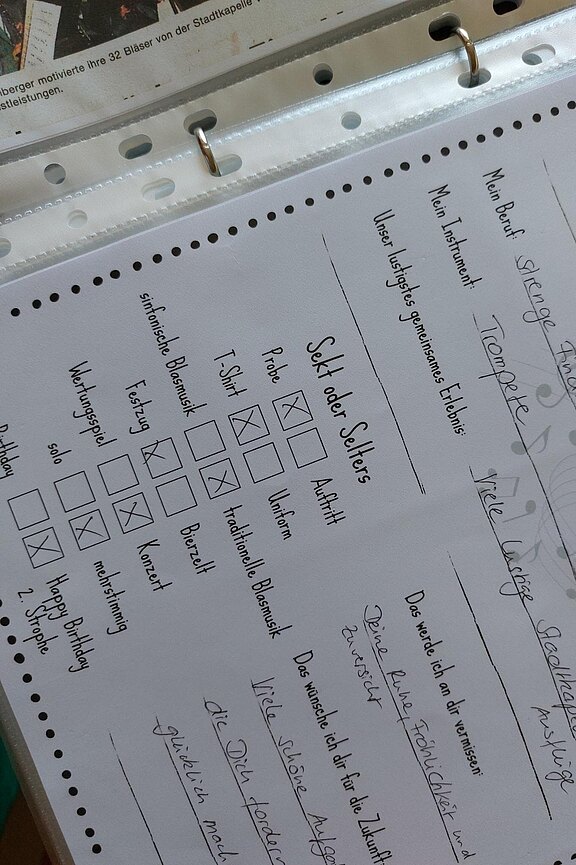 berger motivierte ihre 32 Bläser von der Stadtkapelle
stleistungen.
Mein Beruf: strenge
Mein Instrument: Trompete
Unser lustigstes gemeinsames Erlebnis: Viele lustige Stadtkapelle
Ausflüge
Sekt oder Selters
Probe Auftritt
T-Shirt Uniform
sinfonische Blasmusik traditionelle Blasmusik
Festzug Bierzelt
Wertungsspiel Konzert
solo mehrstimmig
Birthday Happy Birthday
2. Strophe
Das werde ich an dir vermissen:
Deine Ruhe, Fröhlichkeit und
Zuversicht
Das wünsche ich dir für die Zukunft:
Viele schöne Aufga
die Dich fordern
glücklich mach